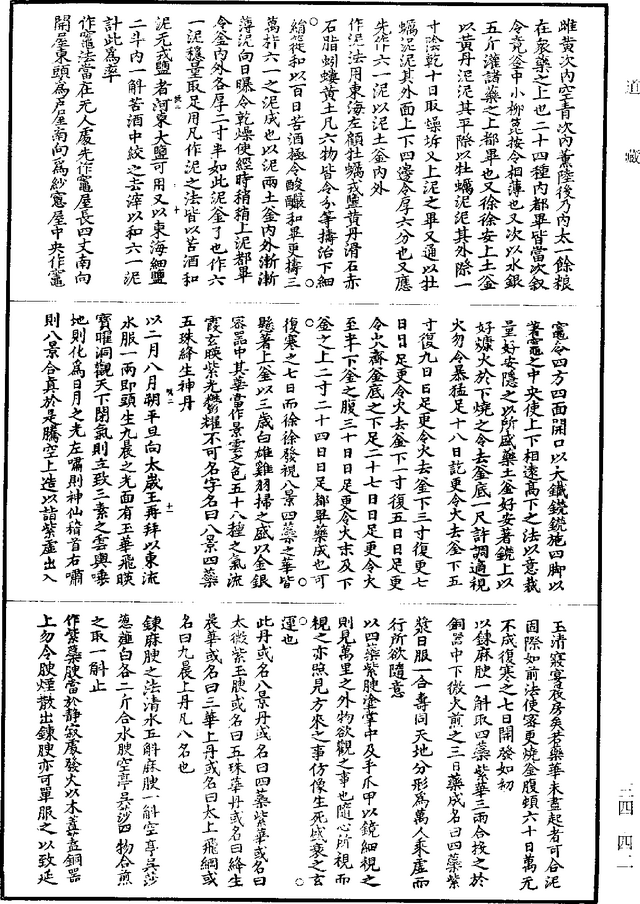 道藏
雌黄次内空青次内薫陸後乃内太一餘粮
在衆藥之上也二十四種内都畢皆當次叙
令竟釜中小柳箆按令相薄也又次以水銀
五斤灌諸藥之上都畢也又徐徐安上土釜
以黄丹泥泥其平際以牡蠣泥泥其外際一
寸陰乾十日取燥坼又上泥之畢又通以牡
蠣泥泥其外面上下四邊令厚六分也又應
先作六一泥以泥土釜内外
作泥法用東海左顧牡蠣戎鹽黄丹滑石赤
石脂蚓螻黄土凡六物皆令分等擣治下細
絹蓰和以百日苦酒極令酸釅和畢更擣三
萬杵六一之泥成也以泥兩土釜内外漸漸
薄泥向日曝令乾燥使經時稍稍上泥都畢
令釜内外各厚二寸半如此泥釜了也作六
一泥穫量取足用凡作泥之法皆以苦酒和
泥无戎鹽者河東大鹽可用又以東海細鹽
二斗内一斛苦酒中絞之去滓以和六一泥
計此爲率
作竈法當在无人處先作竈屋長四丈南向
開屋東頭爲戸屋南向爲紗窻屋中央作竈
竈令四方四面開口以大鐵鐃鐃施四脚以
著竈之中央使上下相遠高下之法以意裁
量好安隱之以所盛藥土釜好安著鐃上以
好濂火於下燒之令去釜底一尺許調適視
火勿令暴猛足十八日訖更令火去釜下五
寸復九日日足更令火去釜下三寸復更七
日日足更令火去釜下一寸復五日日足更
令火齊釜底之下足二十七日日足更令火
至半下釜之腹三十日日足更令火末及下
釜之上二寸二十四日日足都畢藥成也可
復寒之七日而徐徐發視八景四藥之華皆
懸著上釜以三歲白雄雞羽掃之盛以金銀
器中其華當作景雲之色五十八種之氣流
霞玄暎紫光鬱耀不可名字名曰八景四藥
五珠絳生神丹
以二月八月朔平旦向太歲王再拜以東流
水服一兩即頭生九晨之光面有玉華飛暎
寶曜洞觀天下閉氣則立致三素之雲輿唾
地則化爲日月之光左嘯則神仙稽首右嘯
則八景合真於是騰空上造以詣紫虚出入
玉清寢宴夜房矣若藥華未盡起者可合泥
固際如前法使密更燒釜腹頰六十日萬元
不成復寒之七日開發如初
以錬麻腴一斛取四藥紫華三兩合投之於
銅器中下微火煎之三日藥成名曰四藥紫
漿日服一合壽同天地分形爲萬人乘虚而
行所欲隨意
以四藥紫腴塗掌中及手爪甲以鏡細視之
則見萬里之外物欲觀之事也隨心所視而
視之亦照見方來之事仿像生死盛衰之玄
運也
此丹或名八景丹或名曰四藥紫華或名曰
太微紫玉腴或名曰五珠華丹或名曰絳生
晨華或名曰三華上丹或名曰太上飛綱或
名曰九晨上丹凡八名也
錬麻腴之法清水五斛麻腴一斛空亭吳莎
葱薤白各二斤合水腴空亭吳莎四物合煎
之取一斛止
作紫藥腴當於静寂處發火以木蓋蓋銅器
上勿令腴煙散出錬腴亦可單服之以致延
三四 四二